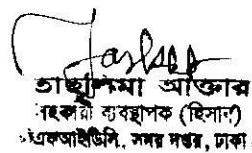 তাছলিমা আক্তার
সহকারী ব্যবস্থাপক (হিসাব)
এফআইডিসি, সদর দপ্তর, ঢাকা